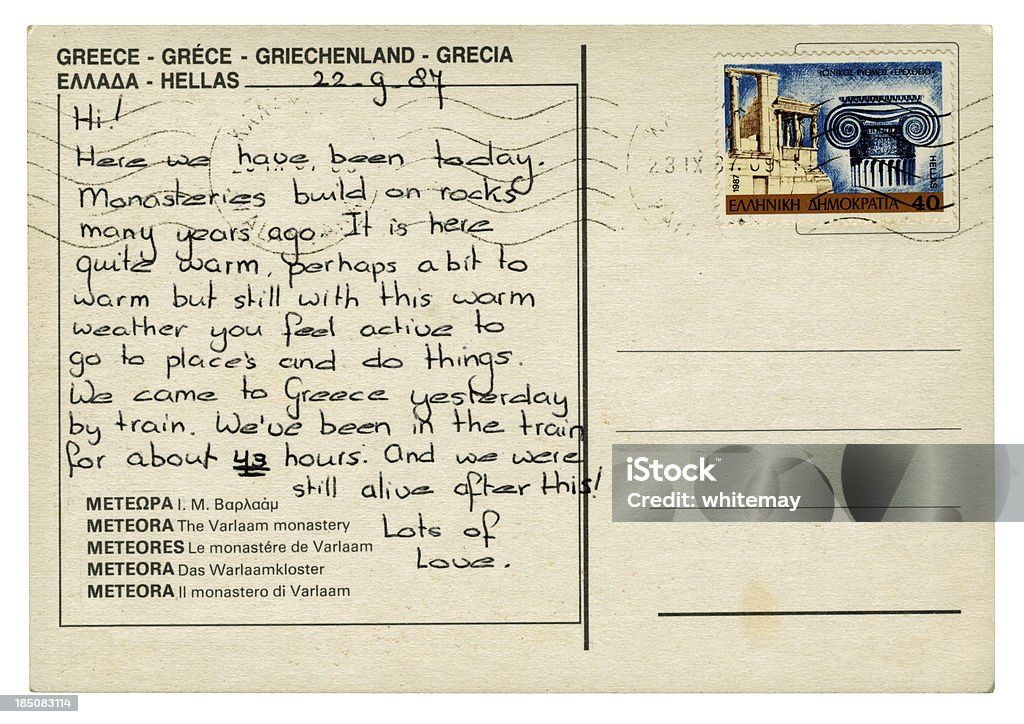 GREECE - GRÉCE - GRIECHENLAND - GRECIA
ΕΛΛΑΔΑ - HELLAS 22-9-87
Hi!
Here we have been today.
Monasteries build on rocks
many years ago. It is here
quite warm, perhaps a bit to
warm but still with this warm
weather you feel active to
go to place's and do things.
We came to Greece yesterday
by train. We've been in the train
for about 43 hours. And we were
still alive after this!
Lots of
Love.
ΜΕΤΕΩΡΑ Ι. Μ. Βαρλαάμ
METEORA The Varlaam monastery
METEORES Le monastére de Varlaam
METEORA Das Warlaamkloster
METEORA Il monastero di Varlaam
ΙΩΝΙΚΟΣ ΡΥΘΜΟΣ «ΕΡΕΧΘΕΙΟ»
1987
HELLAS
ΕΛΛΗΝΙΚΗ ΔΗΜΟΚΡΑΤΙΑ 40
23 IX 87
iStock™
Credit: whitemay
185083114